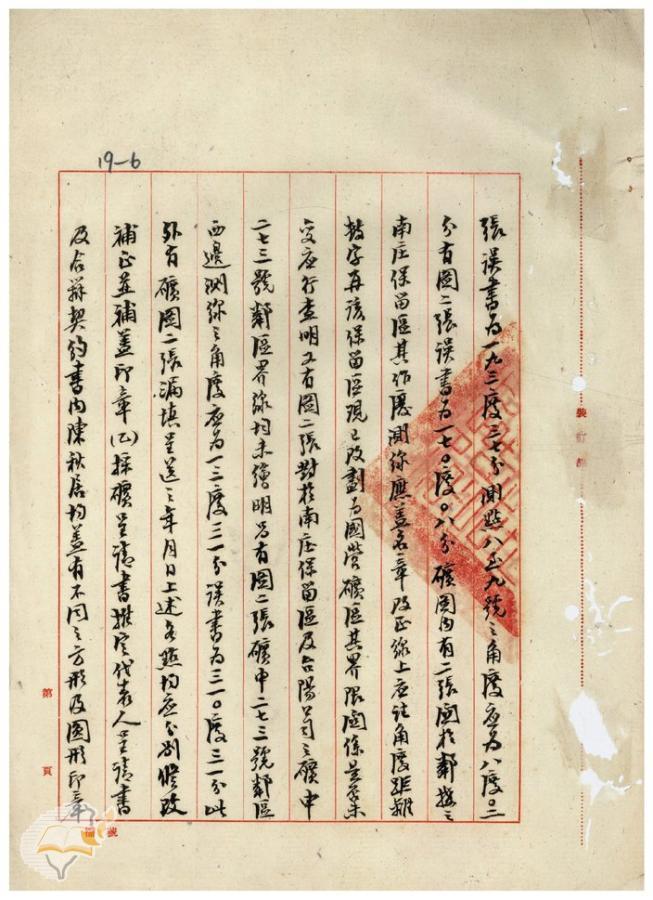 19-6
張誤書為一九三度三七分測點八至九號之角度應為八度〇二
分有圖二張誤書為一七〇度〇八分礦圖內有二張關於鄰接之
南庄保留區其作廢測線應蓋名章改正線上應註角度距離
數字再該保留區現已改劃為國營礦區其界限關係是否未
變應行查明又有圖二張對於南庄保留區及台陽公司之礦申
二七三號鄰區界線均未繪明另有圖二張礦申二七三號鄰區
西邊測線之角度應為一三度三一分誤書為三一〇度三一分此
外有礦圖二張漏填呈送之年月日上述各點均應分別修改
補正並補蓋印章(乙)採礦呈請書推定代表人呈請書
及合辦契約書內陳秋居均蓋有不同之方形及圓形印章
裝訂線
第 頁
號